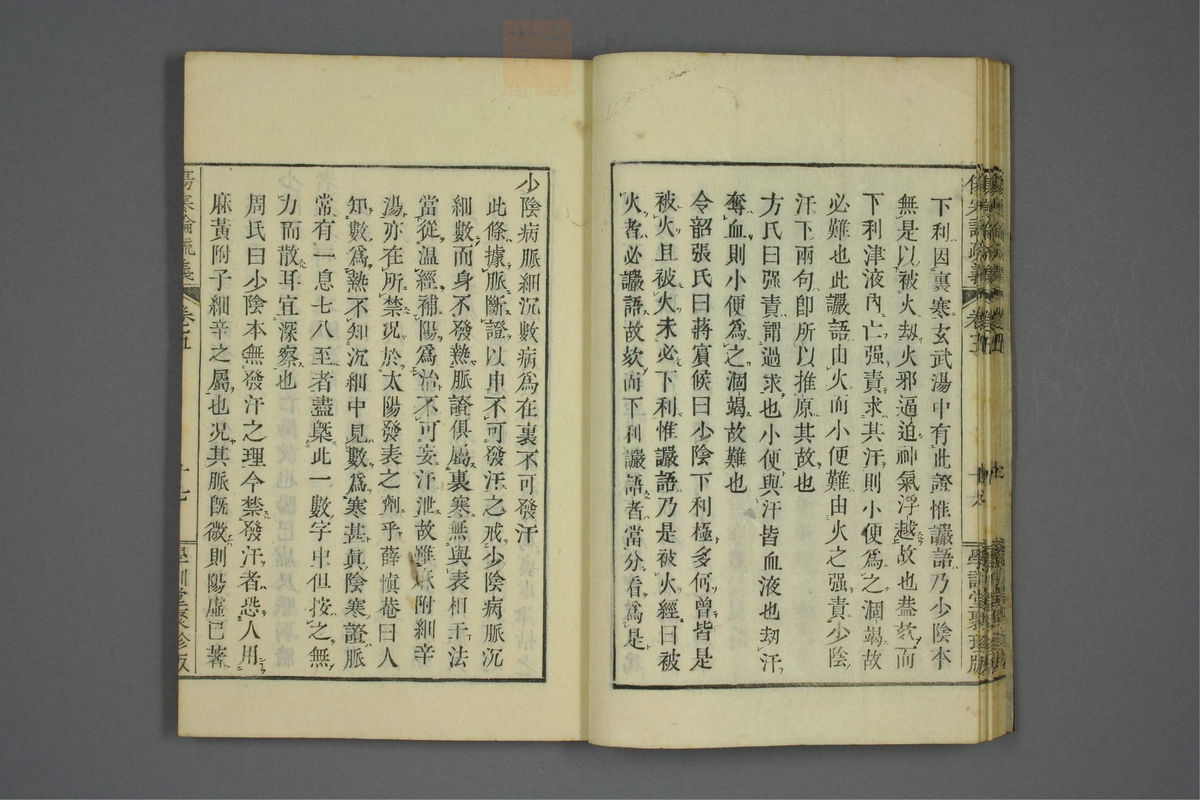 下利因裏寒玄武湯中有此證惟讝語乃少陰本
無是以被火刼火邪逼迫神氣浮越故也葢欬而
下利津液內亡强責求其汗則小便爲之涸竭故
必難也此讝語由火而小便難由火之强責少陰
汗下兩句卽所以推原其故也
方氏曰强責謂過求也小便與汗皆血液也刼汗
奪血則小便爲之涸竭故難也
令韶張氏曰蔣賔候曰少陰下利極多何曾皆是
被火且被火未必下利惟讝語乃是被火經曰被
火者必讝語故欬而下利讝語者當分看爲是
少陰病脈細沉數病爲在裏不可發汗
此條據脈斷證以申不可發汗之戒少陰病脈沉
細數而身不發熱脈證俱屬裏寒無與表相干法
當從温經補陽爲治不可妄汗泄故雖麻附細辛
湯亦在所禁况於太陽發表之劑乎薛愼菴曰人
知數爲熱不知沉細中見數爲寒甚眞陰寒證脈
常有一息七八至者盡槩此一數字中但按之無
力而散耳宜深察也
周氏曰少陰本無發汗之理今禁發汗者恐人用
麻黃附子細辛之屬也况其脈旣微則陽虛已著
傷寒論疏義
卷五
十七
學訓堂聚珍版